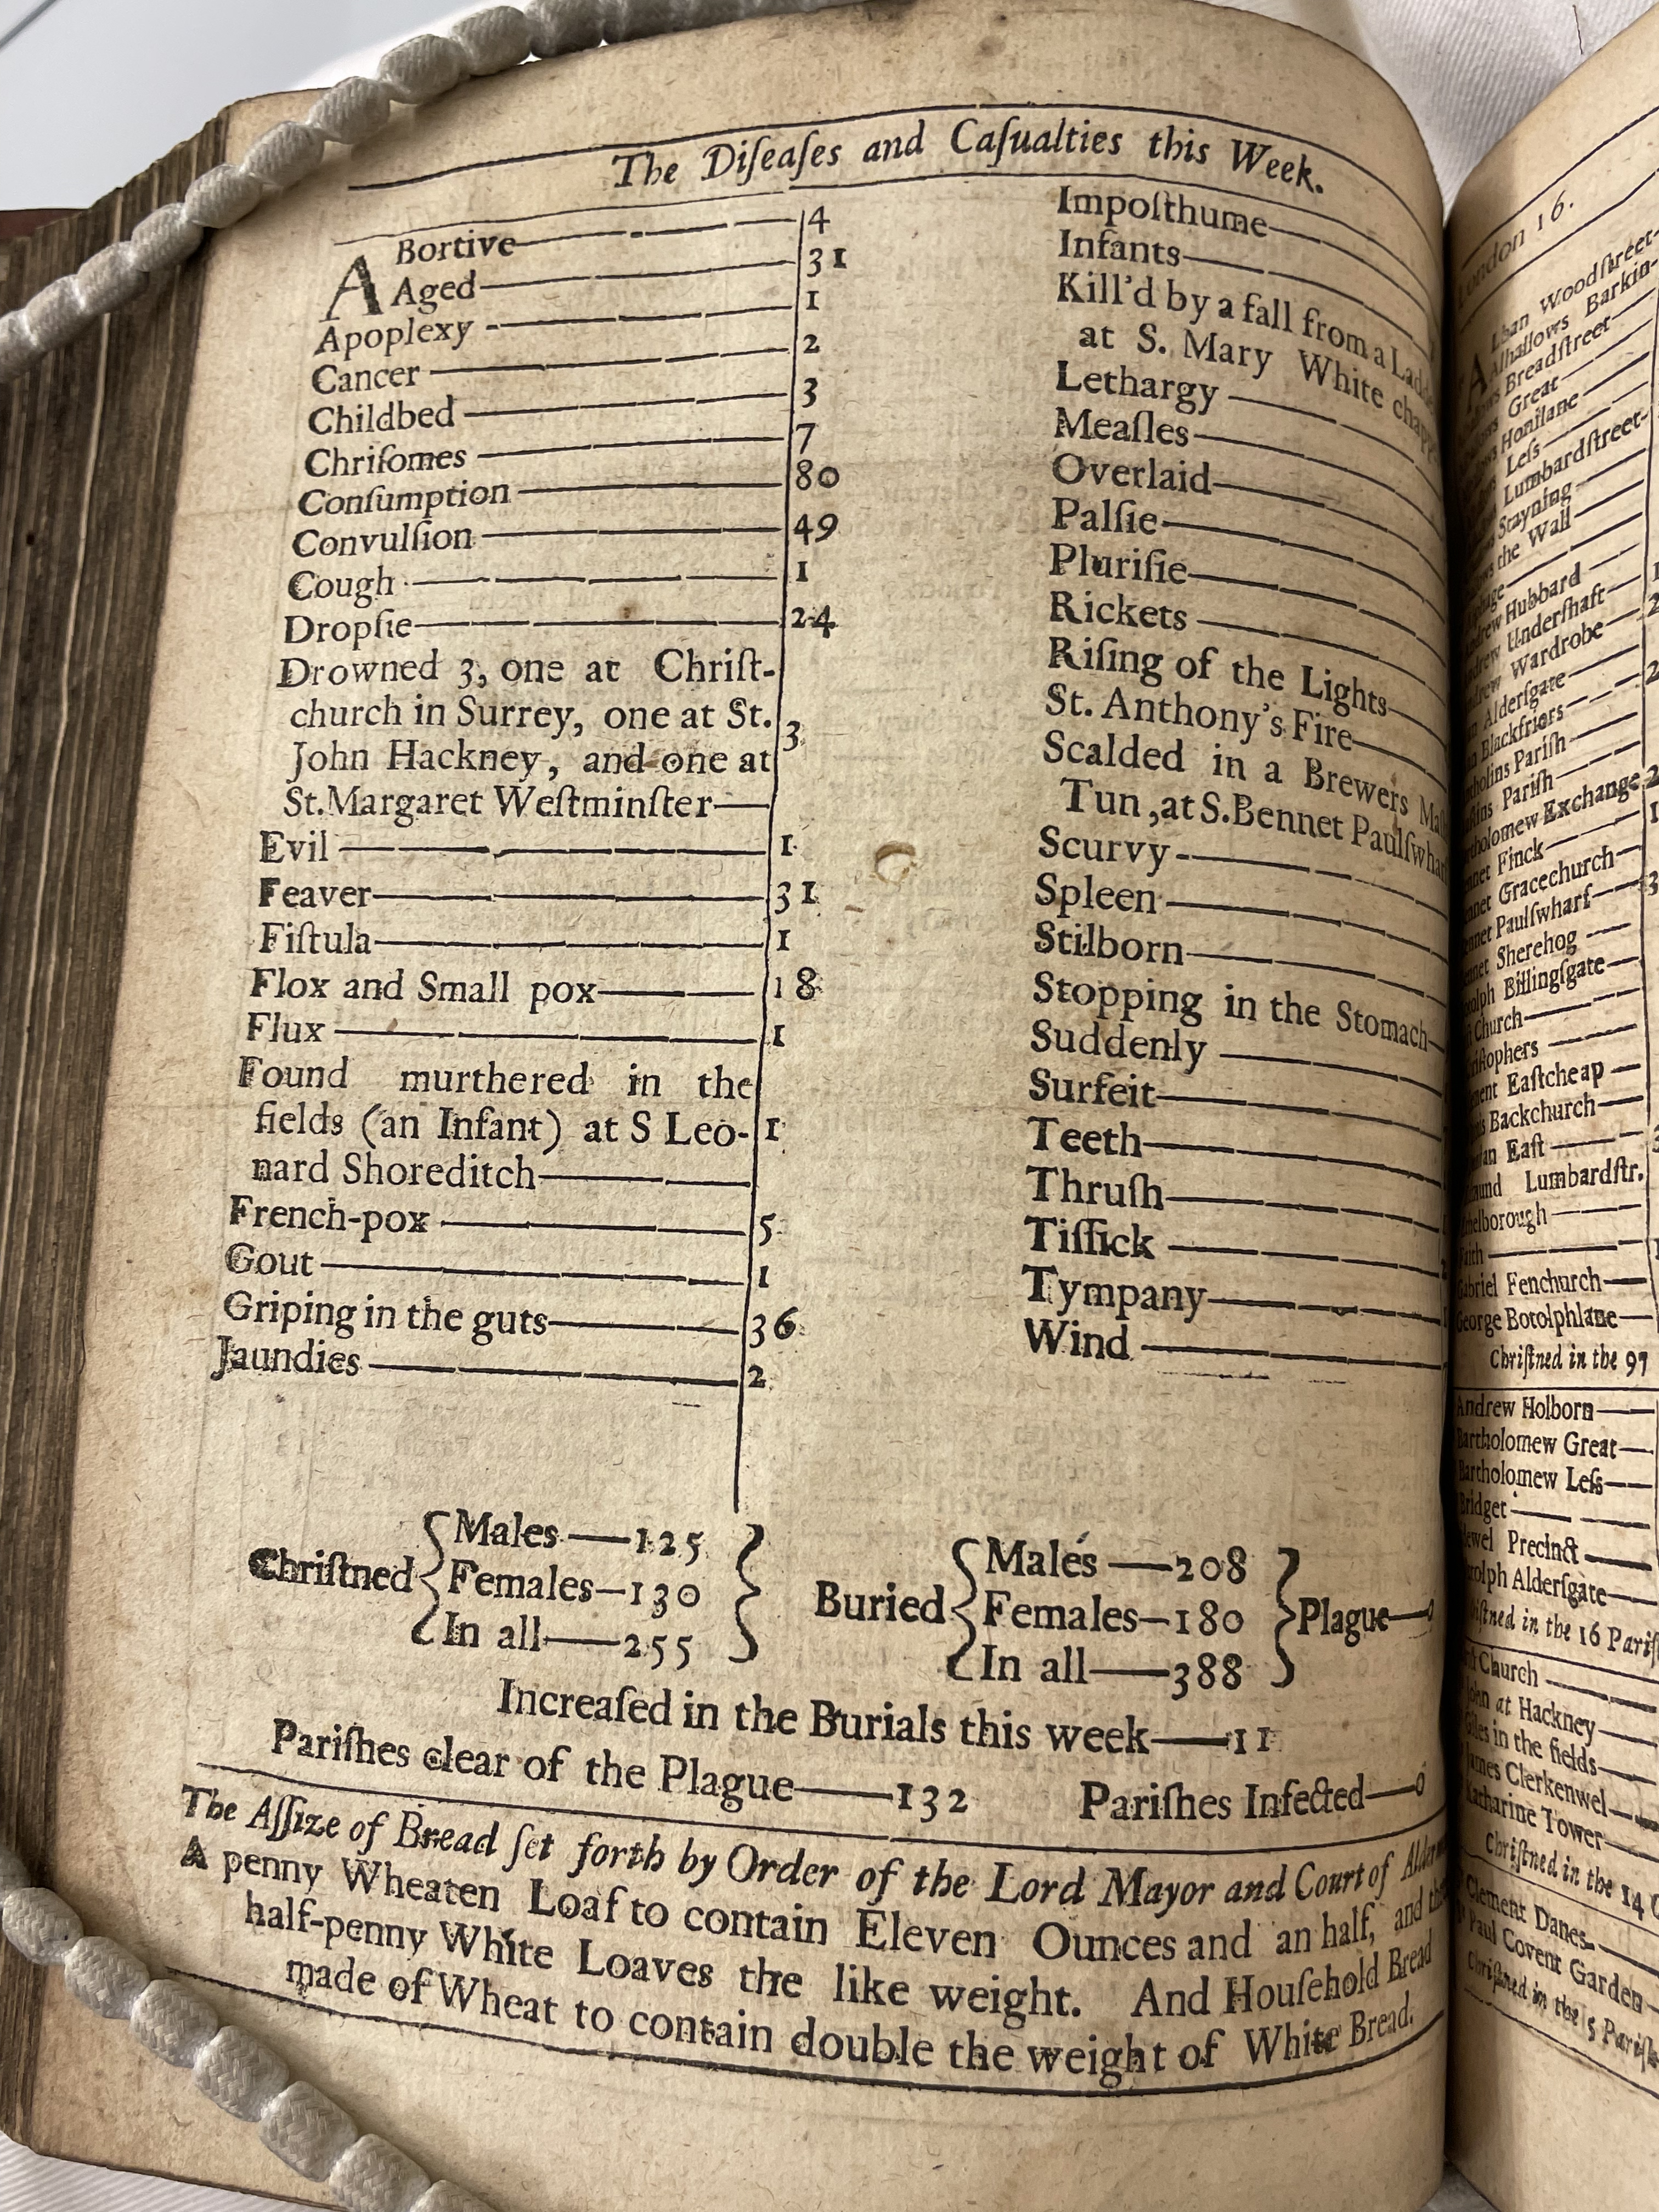 The Diſeaſes and Caſualties this Week.
ABortive 4
Aged 31
Apoplexy 1
Cancer 2
Childbed 3
Chriſomes 7
Conſumption 80
Convulſion 49
Cough 1
Dropſie 24
Drowned 3, one at Chriſt-
church in Surrey, one at St.
John Hackney, and one at 3
St. Margaret Weſtminſter
Evil 1
Feaver 31
Fiſtula 1
Flox and Small pox 18
Flux 1
Found murthered in the
fields (an Infant) at S Leo- 1
nard Shoreditch
French-pox 5
Gout 1
Griping in the guts 36
Jaundies 2
Impoſthume
Infants
Kill'd by a fall from a
at S. Mary White
Lethargy
Meaſles
Overlaid
Palſie
Pluriſie
Rickets
Riſing of the Lights
St. Anthony's Fire
Scalded in a Brewers
Tun, at S. Bennet
Scurvy
Spleen
Stilborn
Stopping in the Stomach
Suddenly
Surfeit
Teeth
Thruſh
Tiſſick
Tympany
Wind
Chriſtned
Males—125
Females—130
In all—255
Buried
Males—208
Females—180
In all—388
Plague—0
Increaſed in the Burials this week—11
Pariſhes clear of the Plague—132 Pariſhes Infected—0
The Aſſize of Bread ſet forth by Order of the Lord Mayor and Court of
A penny Wheaten Loaf to contain Eleven Ounces and an half, and
half-penny White Loaves the like weight. And Houſehold Bread
made of Wheat to contain double the weight of White Bread.
London 16.
Woodſtreet
Barkin-
Breadſtreet
Great
Honilane
Leſs
Lumbardſtreet
Stayning
the Wall
Hubbard
Underſhaft
Wardrobe
Alderſgate
Blackfriers
Pariſh
Pariſh
Exchange 2
Finck
Gracechurch
Paulſwharf
Sherehog
Billingſgate
Church
Eaſtcheap
Backchurch
Eaſt
Lumbardſtr.
Fenchurch
George Botolphlane
Chriſtned in the 97
Andrew Holborn
Bartholomew Great
Bartholomew Leſs
Bridget
Precinct
Alderſgate
in the 16
Church
John at Hackney
Giles in the fields
James Clerkenwel
Katharine Tower
Chriſtned in the 14
Clement Danes
Paul Covent Garden
Chriſtned in the 5